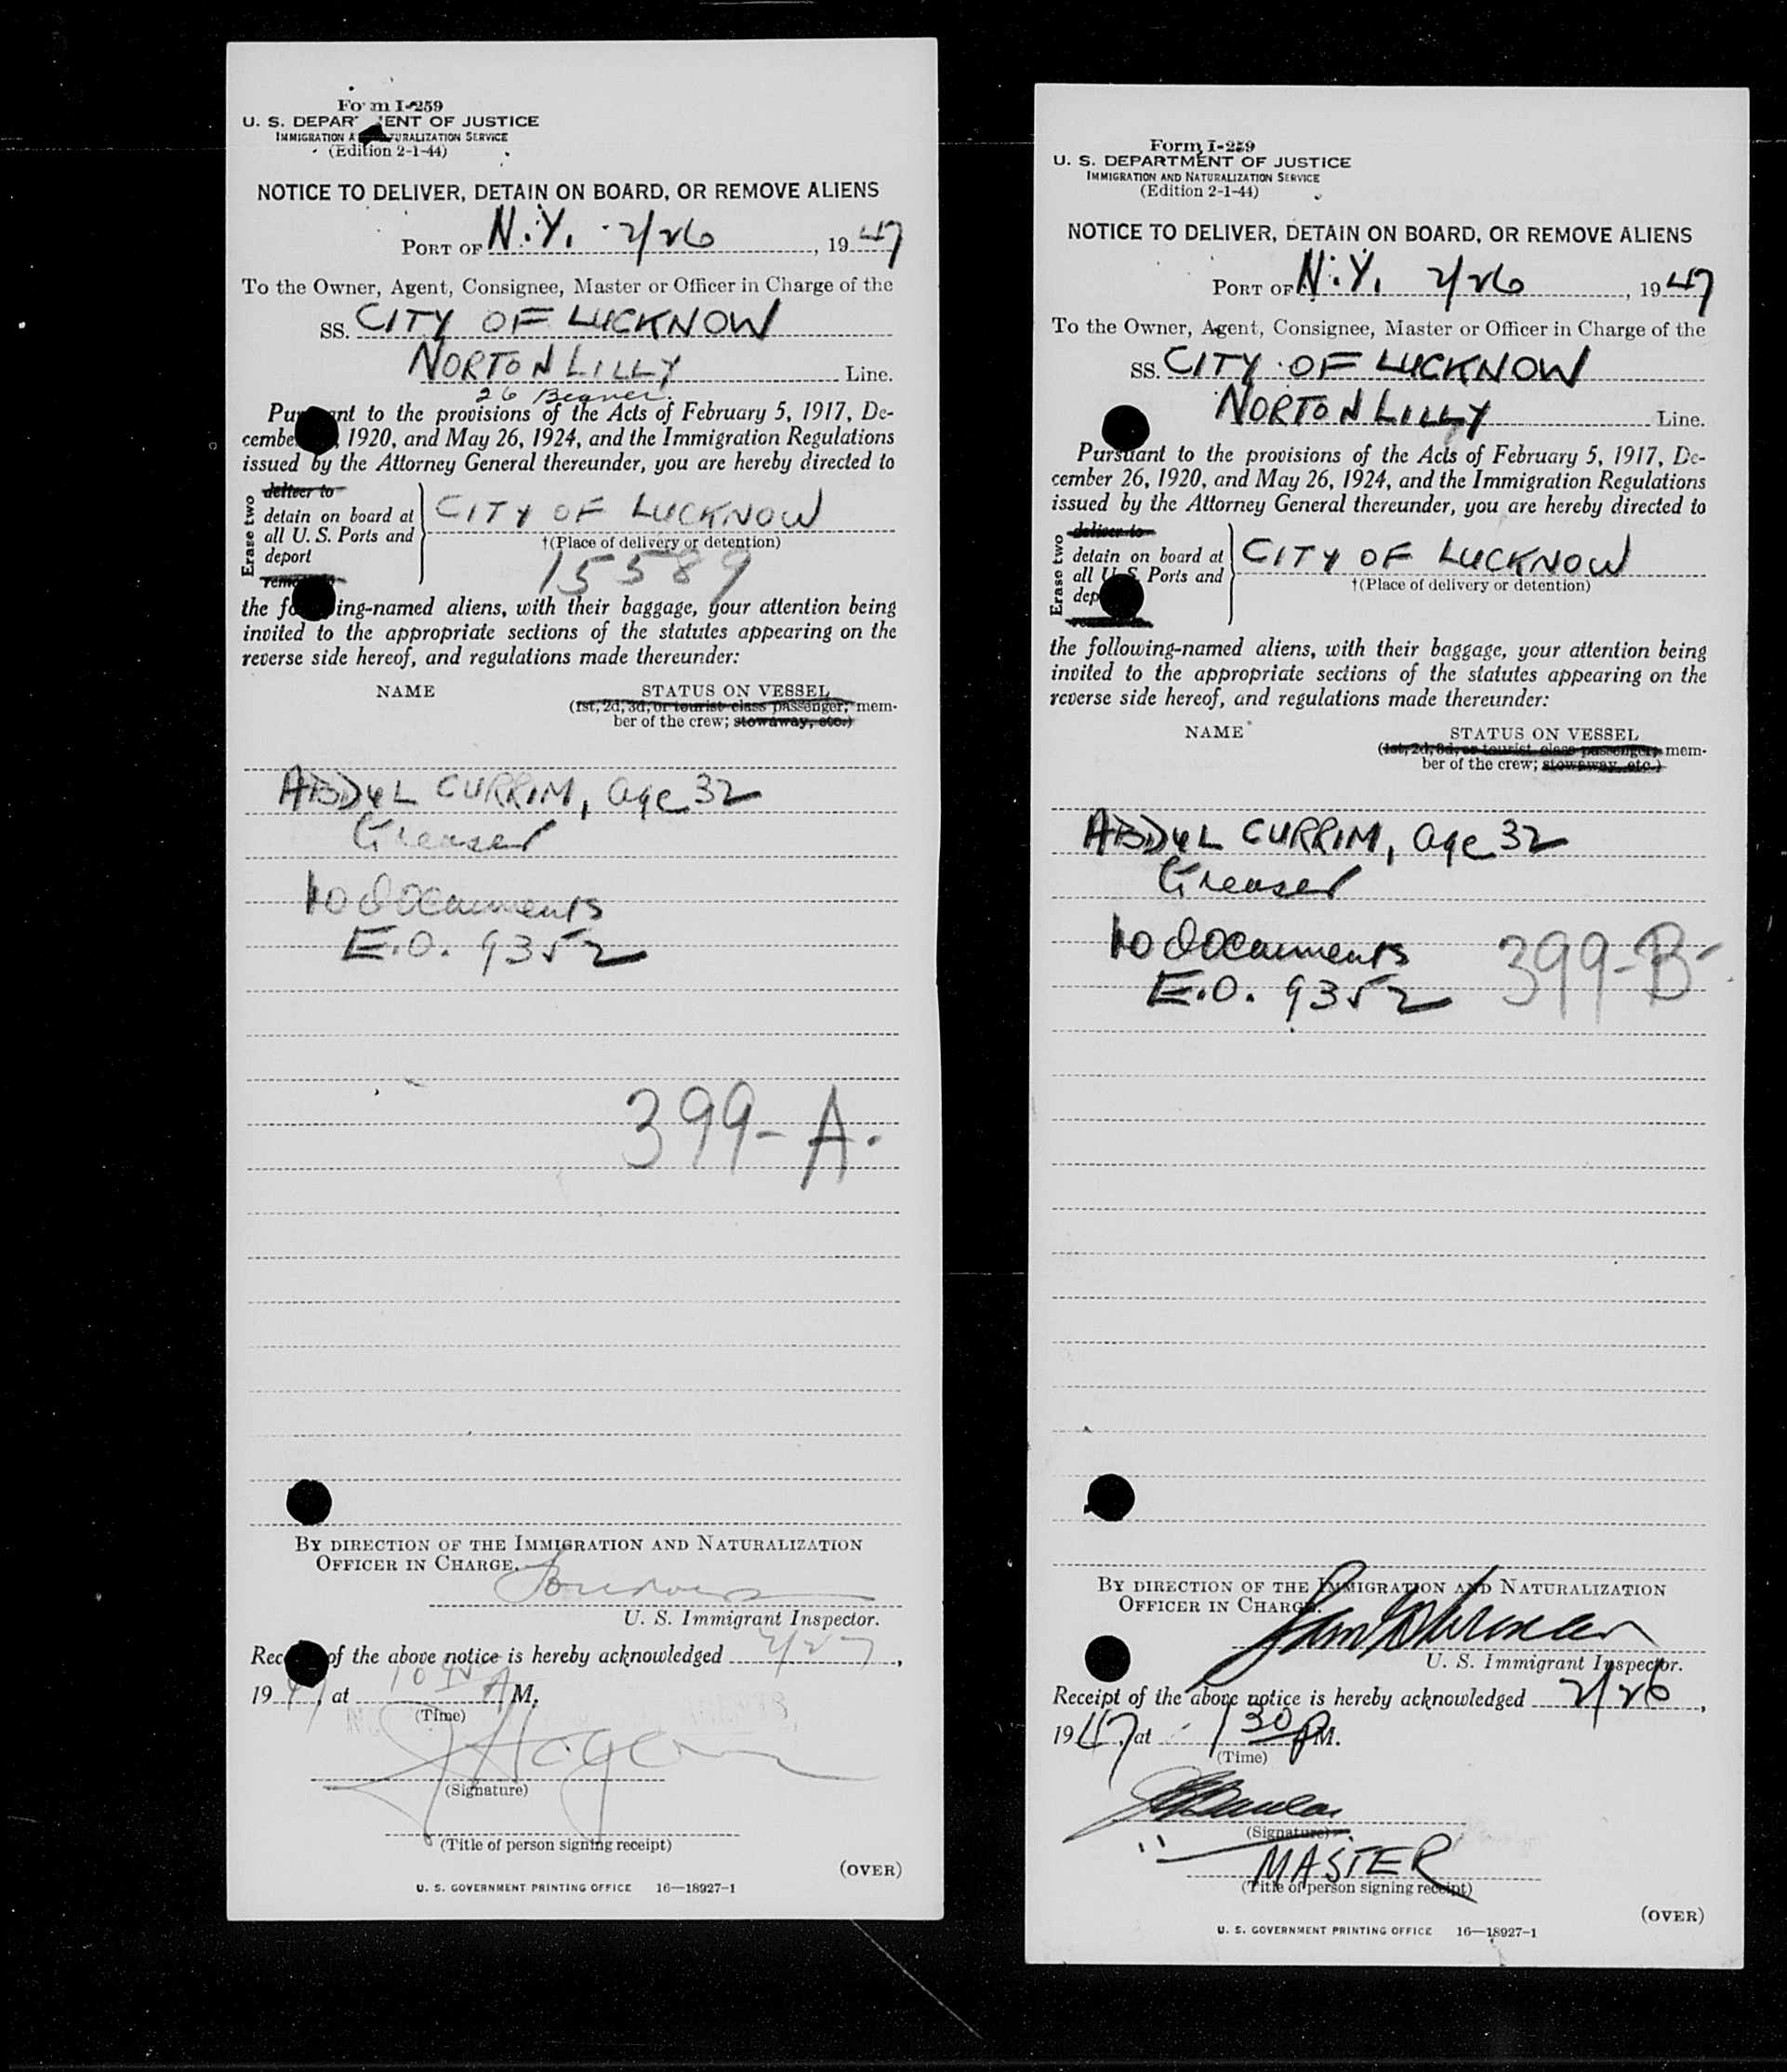 Form I-259
U. S. DEPARTMENT OF JUSTICE
IMMIGRATION AND NATURALIZATION SERVICE
(Edition 2-1-44)
NOTICE TO DELIVER, DETAIN ON BOARD, OR REMOVE ALIENS
PORT OF N.Y. 2/26, 1947
To the Owner, Agent, Consignee, Master or Officer in Charge of the
SS. CITY OF LUCKNOW
NORTON LILLY Line.
26 Beaver.
Pursuant to the provisions of the Acts of February 5, 1917, De-
cember 1920, and May 26, 1924, and the Immigration Regulations
issued by the Attorney General thereunder, you are hereby directed to
Erase two
deliver to
detain on board at
all U. S. Ports and
deport
remove
CITY OF LUCKNOW
†(Place of delivery or detention)
15589
the following-named aliens, with their baggage, your attention being
invited to the appropriate sections of the statutes appearing on the
reverse side hereof, and regulations made thereunder:
NAME STATUS ON VESSEL
(1st, 2d, 3d, or tourist class passenger; mem-
ber of the crew; stowaway, etc.)
ABDUL CURRIM, age 32
Greaser
No documents
E.O. 9352
399-A.
BY DIRECTION OF THE IMMIGRATION AND NATURALIZATION
OFFICER IN CHARGE.
U. S. Immigrant Inspector.
Receipt of the above notice is hereby acknowledged 2/27,
1947, at 10 A M.
(Time)
(Signature)
(Title of person signing receipt)
(OVER)
U. S. GOVERNMENT PRINTING OFFICE 16—18927-1
Form I-259
U. S. DEPARTMENT OF JUSTICE
IMMIGRATION AND NATURALIZATION SERVICE
(Edition 2-1-44)
NOTICE TO DELIVER, DETAIN ON BOARD, OR REMOVE ALIENS
PORT OF N.Y. 2/26, 1947
To the Owner, Agent, Consignee, Master or Officer in Charge of the
SS. CITY OF LUCKNOW
NORTON LILLY Line.
Pursuant to the provisions of the Acts of February 5, 1917, De-
cember 26, 1920, and May 26, 1924, and the Immigration Regulations
issued by the Attorney General thereunder, you are hereby directed to
Erase two
deliver to
detain on board at
all U. S. Ports and
deport
remove
CITY OF LUCKNOW
†(Place of delivery or detention)
the following-named aliens, with their baggage, your attention being
invited to the appropriate sections of the statutes appearing on the
reverse side hereof, and regulations made thereunder:
NAME STATUS ON VESSEL
(1st, 2d, 3d, or tourist class passenger; mem-
ber of the crew; stowaway, etc.)
ABDUL CURRIM, age 32
Greaser
No documents
E.O. 9352 399-B
BY DIRECTION OF THE IMMIGRATION AND NATURALIZATION
OFFICER IN CHARGE.
U. S. Immigrant Inspector.
Receipt of the above notice is hereby acknowledged 2/26,
1947, at 1 30 P M.
(Time)
(Signature)
MASTER
(Title of person signing receipt)
(OVER)
U. S. GOVERNMENT PRINTING OFFICE 16—18927-1